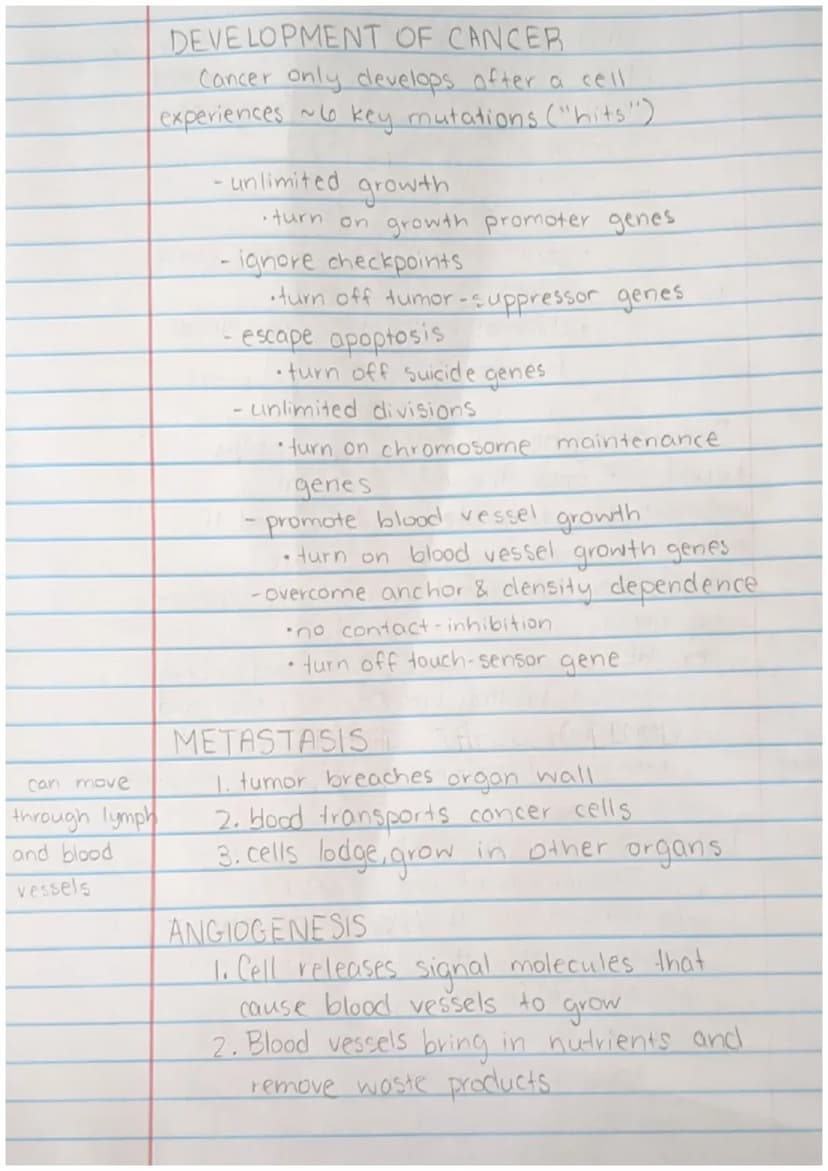 DEVELOPMENT OF CANCER
Cancer only develops after a cell
experiences ~6 key mutations ("hits")
- unlimited growth
• turn on growth promoter genes
- ignore checkpoints
• turn off tumor-suppressor genes
- escape apoptosis
• turn off suicide genes
- unlimited divisions
• turn on chromosome maintenance
genes
- promote blood vessel growth
• turn on blood vessel growth genes
- overcome anchor & density dependence
• no contact-inhibition
• turn off touch-sensor gene
METASTASIS
1. tumor breaches organ wall
2. blood transports cancer cells
3. cells lodge, grow in other organs
can move
through lymph
and blood
vessels
ANGIOGENESIS
1. Cell releases signal molecules that
cause blood vessels to grow
2. Blood vessels bring in nutrients and
remove waste products